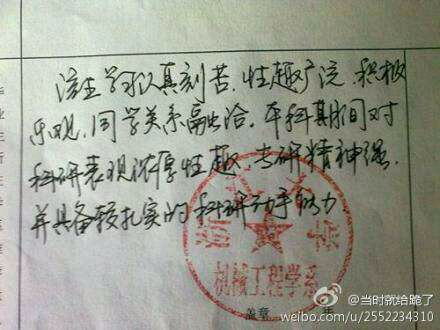 该生学习认真刻苦，性趣广泛，积极
乐观，同学关系融洽。本科期间对
科研表现浓厚性趣，专研精神强，
并具备较扎实的科研动手能力
浙 大学
机械工程学系
盖章
@当时就给跪了
weibo.com/u/2552234310